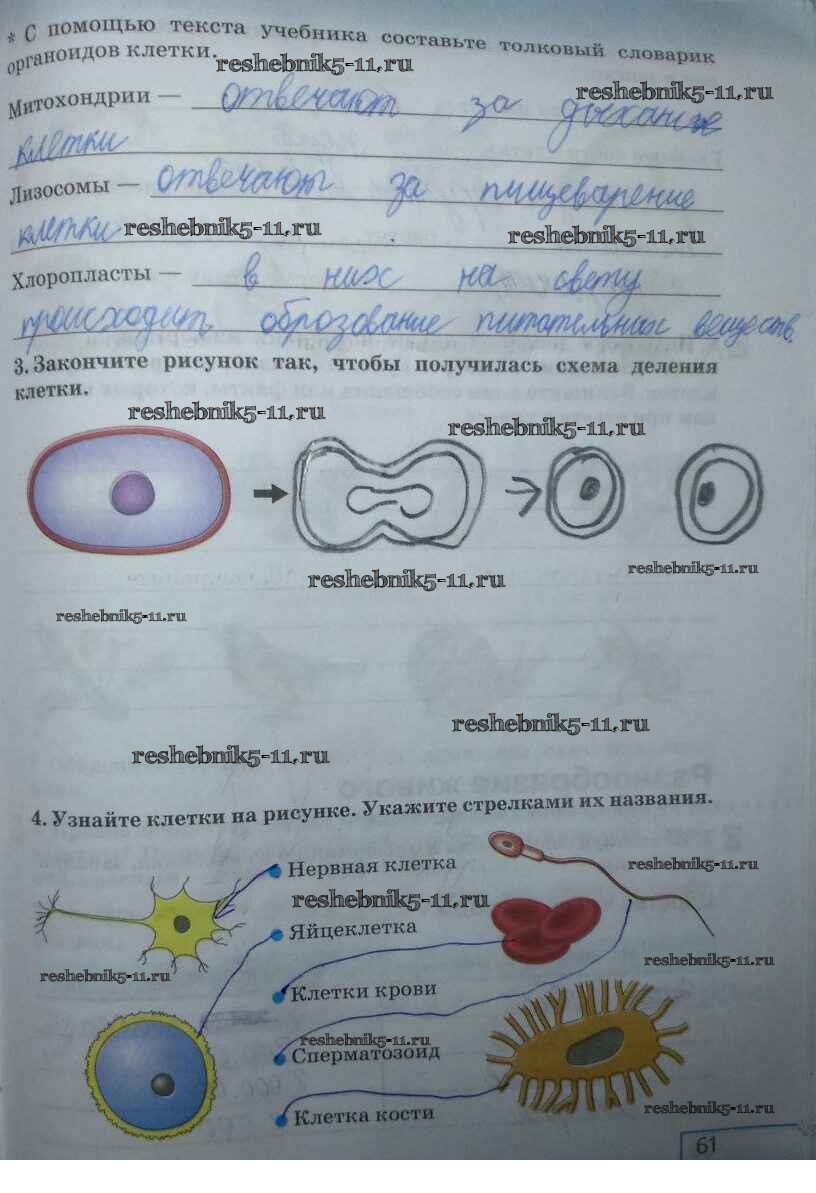 * С помощью текста учебника составьте толковый словарик
органоидов клетки.
reshebnik5-11.ru
reshebnik5-11.ru
Митохондрии — отвечают за дыхание
клетки
Лизосомы — отвечают за пищеварение
клетки
reshebnik5-11.ru
reshebnik5-11.ru
Хлоропласты — в них на свету
происходит образование питательных веществ.
3. Закончите рисунок так, чтобы получилась схема деления
клетки.
reshebnik5-11.ru
reshebnik5-11.ru
reshebnik5-11.ru
reshebnik5-11.ru
reshebnik5-11.ru
reshebnik5-11.ru
reshebnik5-11.ru
Разнообразие живого
4. Узнайте клетки на рисунке. Укажите стрелками их названия.
Нервная клетка
reshebnik5-11.ru
reshebnik5-11.ru
Яйцеклетка
reshebnik5-11.ru
reshebnik5-11.ru
Клетки крови
reshebnik5-11.ru
Сперматозоид
Клетка кости
reshebnik5-11.ru
61